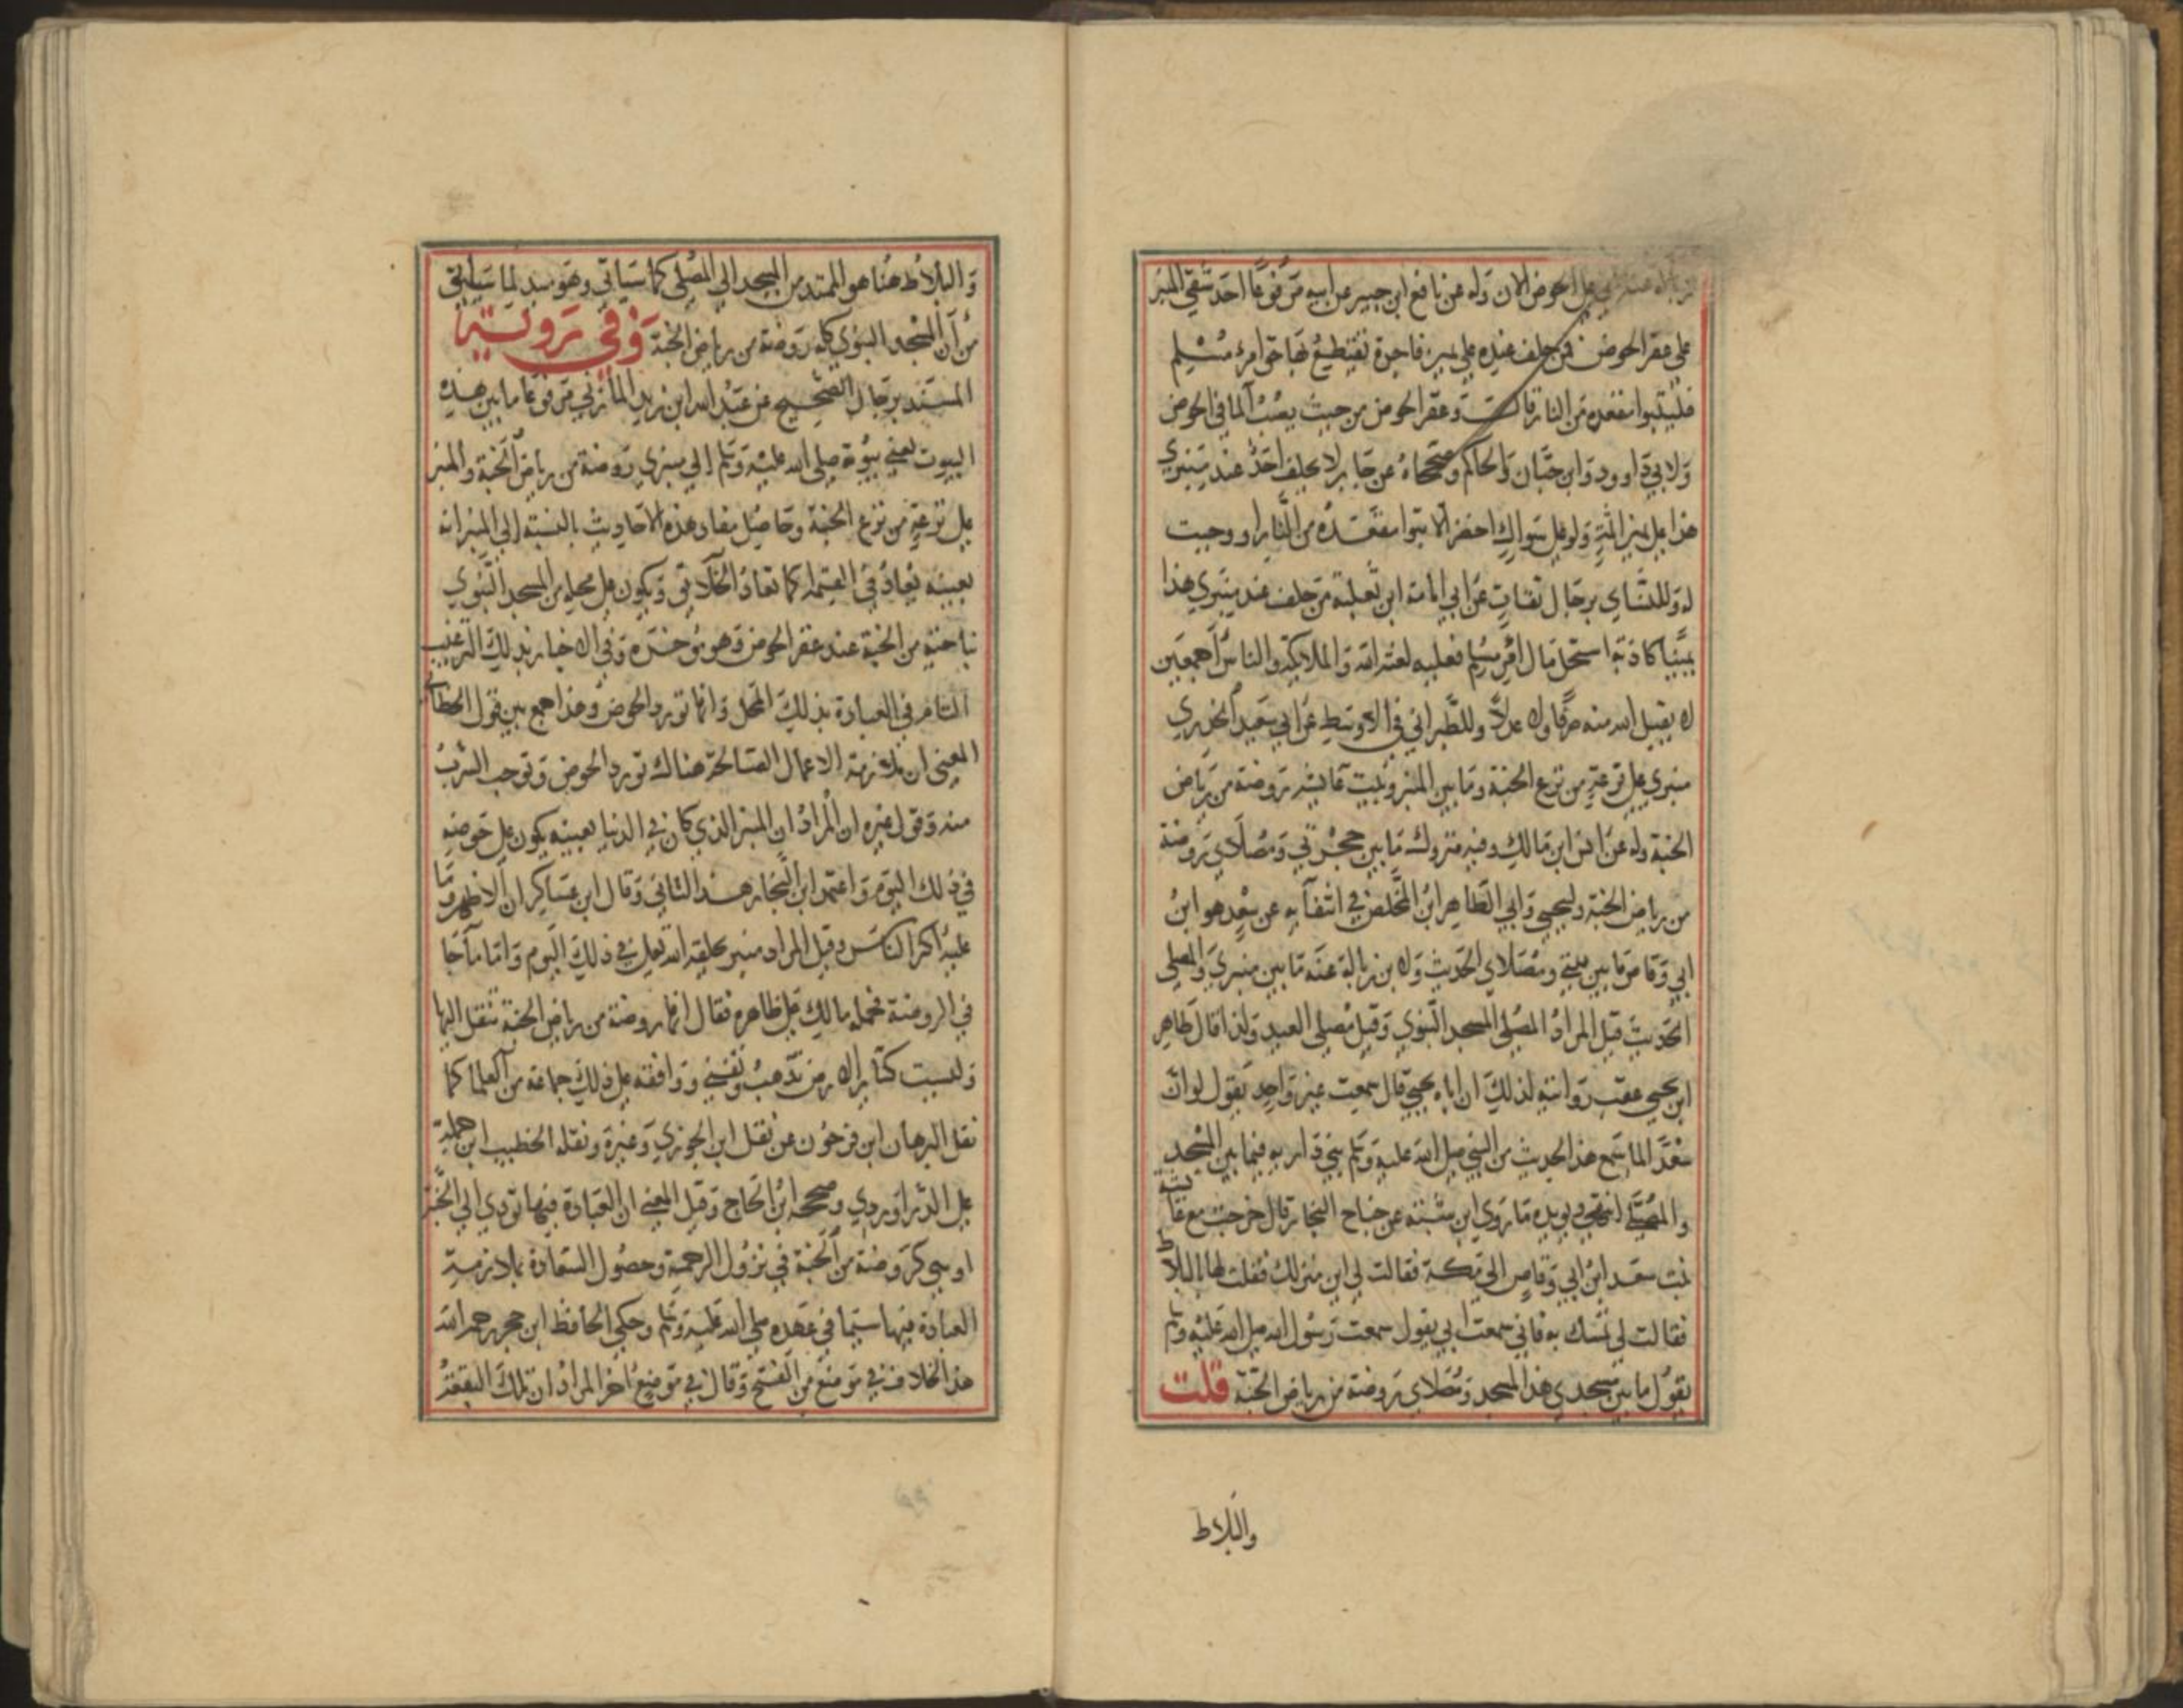 على الحوض الان وله عن نافع ابن جبير عن ابيه مرفوعا احد شقي المنبر
على عقر الحوض فمن حلف عنده على يمين فاجرة يقتطع بها حق امرئ مسلم
فليتبوا مقعده من النار قال وعقر الحوض من حيث يصب الما في الحوض
ولابي داوود وابن حبان والحاكم وصححاه عن جابر لا يحلف احد عند منبري
هذا على يمين اثمة ولو على سواك اخضر الا تبوا مقعده من النار او وجبت
له وللنساي برجال ثقات عن ابي امامة ابن ثعلبة من حلف عند منبري هذا
يمينا كاذبة استحل مال امرء مسلم فعليه لعنة الله والملايكة والناس اجمعين
لا يقبل الله منه صرفا ولا عدلا وللطبراني في الاوسط عن ابي سعيد الخدري
منبري على ترعة من ترع الجنة وما بين المنبر وبيت عايشه روضة من رياض
الجنة وله عن انس ابن مالك وفيه متروك ما بين حجرتي ومصلاي روضة
من رياض الجنة وليحيى وابي الطاهر ابن المخلص في انتقآيه عن سعد هو ابن
ابي وقاص ما بين بيتي ومصلاي الحديث ولا بن زبالة عنه ما بين منبري والمصلى
الحديث قيل المراد المصلى المسجد النبوي وقيل مصلى العيد ولذا قال طاهر
ابن يحيى عقب روايته لذلك ان اباه يحيى قال سمعت غير واحد يقول لو ان
سعدا لما سمع هذا الحديث من النبي صلى الله عليه وسلم بنى داريه فيما بين المسجد
والمصلى انتهى ويويده ما روى ابن شبة عن جناح النجار قال خرجت مع عايشة
بنت سعد ابن ابي وقاص الى مكة فقالت لي اين منزلك فقلت لها البلاط
فقالت لي تمسك به فاني سمعت ابي يقول سمعت رسول الله صلى الله عليه وسلم
يقول ما بين مسجدي هذا المسجد ومصلاي روضة من رياض الجنة قلت
والبلاط
والبلاط هنا هو الممتد من المسجد الى المصلى كما سياتي وهو لما سياتي
من ان المسجد النبوي كله روضة من رياض الجنة وفي رواية
المسند برجال الصحيح عن عبد الله ابن زيد المازني مرفوعا ما بين هذه
البيوت يعني بيوته صلى الله عليه وسلم الى منبري روضة من رياض الجنة والمنبر
على ترعة من ترع الجنة وحاصل مفاد هذه الاحاديث بالنسبة الى المنبر انه
بعينه يعاد في القيمة كما تعاد الخلآئق ويكون على محله من المسجد النبوي
ناحية من الجنة عند عقر الحوض وهو موخره وفي الاخبار بذلك الترغيب
التام في العبادة بذلك المحل وانها تورد الحوض وهذا جمع بين قول الخطابي
المعنى ان ملازمة الاعمال الصالحة هناك تورد الحوض وتوجب الشرب
منه وقول غيره ان المراد ان المنبر الذي كان في الدنيا بعينه يكون على حوضه
في ذلك اليوم واعتمد ابن النجار هذا الثاني وقال ابن عساكر ان الاظهر وما
عليه اكثر الناس وقيل المراد منبر يخلقه الله تعالى في ذلك اليوم واما ما جا
في الروضة فحمله مالك على ظاهره فقال انها روضة من رياض الجنة تنقل اليها
وليست كسآير الارض تذهب وتفنى ووافقه على ذلك جماعة من العلما كما
نقل البرهان ابن فرحون عن نقل ابن الجوزي وغيره ونقله الخطيب ابن جملة
على الدراوردي وصححه ابن الحاج وقيل المعنى ان العبادة فيها تودي الى الجنة
او هي كروضة من الجنة في نزول الرحمة وحصول السعادة بملازمة
العبادة فيها سيما في عهده صلى الله عليه وسلم وحكى الحافظ ابن حجر رحمه الله
هذا الخلاف في موضع من الفتح وقال في موضع اخر المراد ان تلك البقعة